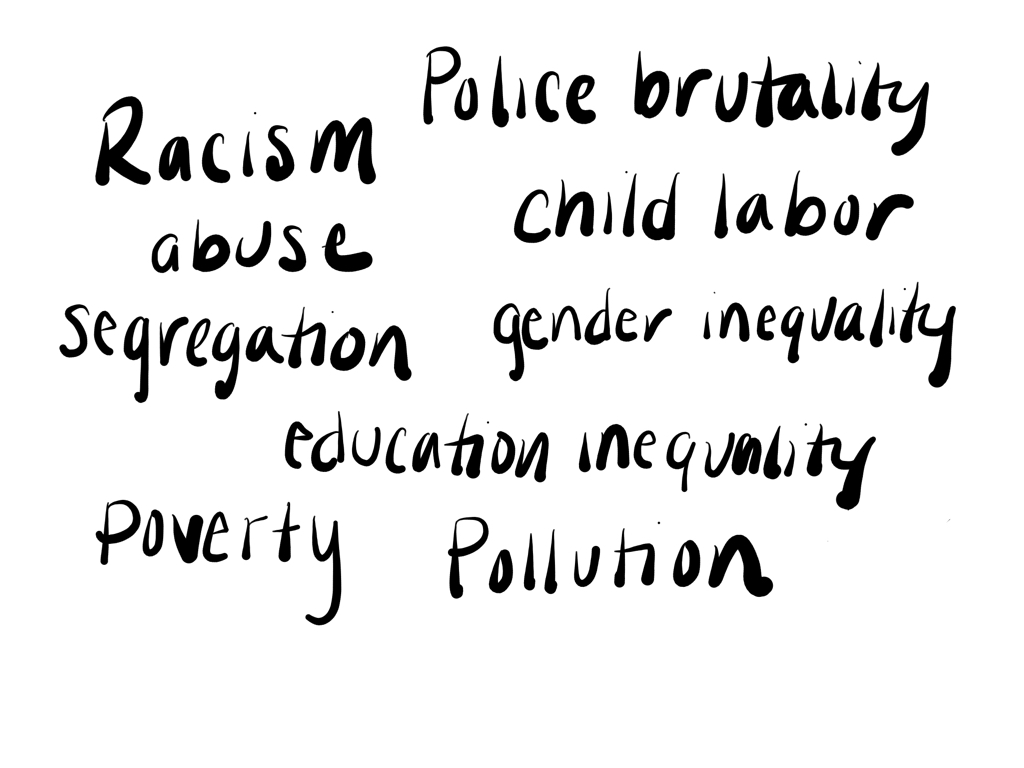 Police brutality
Racism
child labor
abuse
segregation
gender inequality
education inequality
Poverty
Pollution